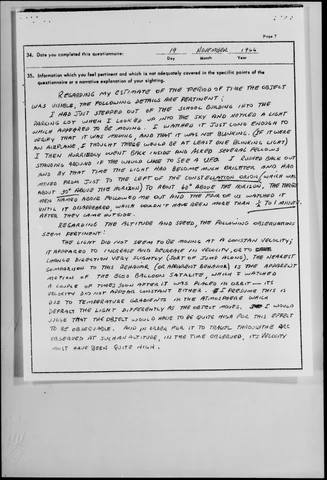 Page 7
34. Date you completed this questionnaire: 19 NOVEMBER 1966
Day Month Year
35. Information which you feel pertinent and which is not adequately covered in the specific points of the
questionnaire or a narrative explanation of your sighting.
REGARDING MY ESTIMATE OF THE PERIOD OF TIME THE OBJECT
WAS VISIBLE, THE FOLLOWING DETAILS ARE PERTINENT;
I HAD JUST STEPPED OUT OF THE SCHOOL BUILDING INTO THE
PARKING LOT WHEN I LOOKED UP INTO THE SKY AND NOTICED A LIGHT
WHICH APPEARED TO BE MOVING. I WATCHED IT JUST LONG ENOUGH TO
VERIFY THAT IT WAS MOVING, AND THAT IT WAS NOT BLINKING. (IF IT WERE
AN AIRPLANE, I THOUGHT THERE WOULD BE AT LEAST ONE BLINKING LIGHT)
I THEN HURRIEDLY WENT BACK INSIDE AND ASKED SEVERAL FELLOWS
STANDING AROUND IF THE WOULD LIKE TO SEE A UFO. I RUSHED BACK OUT
AND BY THAT TIME THE LIGHT HAD BECOME MUCH BRIGHTER AND HAD
MOVED FROM JUST TO THE LEFT OF THE CONSTELLATION ORION (WHICH WAS
ABOUT 30° ABOVE THE HORIZON) TO ABOUT 60° ABOVE THE HORIZON. THE THREE
MEN NAMED ABOVE FOLLOWED ME OUT AND THE FOUR OF US WATCHED IT
UNTIL IT DISAPPEARED, WHICH COULDN'T HAVE BEEN MORE THAN ½ TO 1 MINUTE
AFTER THEY CAME OUTSIDE.
REGARDING THE ALTITUDE AND SPEED, THE FOLLOWING OBSERVATIONS
SEEM PERTINENT:
THE LIGHT DID NOT SEEM TO BE MOVING AT A CONSTANT VELOCITY;
IT APPEARED TO INCREASE AND DECREASE IN VELOCITY, OR TO
CHANGE DIRECTION VERY SLIGHTLY (SORT OF JUMP ALONG), THE NEAREST
COMPARISON TO THIS BEHAVIOR (OR APPARENT BEHAVIOR) IS THE APPARENT
MOTION OF THE ECHO BALLOON SATALITE, WHICH I WATCHED
A COUPLE OF TIMES SOON AFTER IT WAS PLACED IN ORBIT — ITS
VELOCITY DID NOT APPEAR CONSTANT EITHER. I PRESUME THIS IS
DUE TO TEMPERATURE GRADIENTS IN THE ATMOSPHERE WHICH
DEFRACT THE LIGHT DIFFERENTLY AS THE OBJECT MOVES. I WOULD
JUDGE THAT THE OBJECT WOULD HAVE TO BE QUITE HIGH FOR THIS EFFECT
TO BE OBSERVABLE. AND IN ORDER FOR IT TO TRAVEL THROUGH THE ARC
OBSERVED AT SUCH AN ALTITUDE, IN THE TIME OBSERVED, ITS VELOCITY
MUST HAVE BEEN QUITE HIGH.